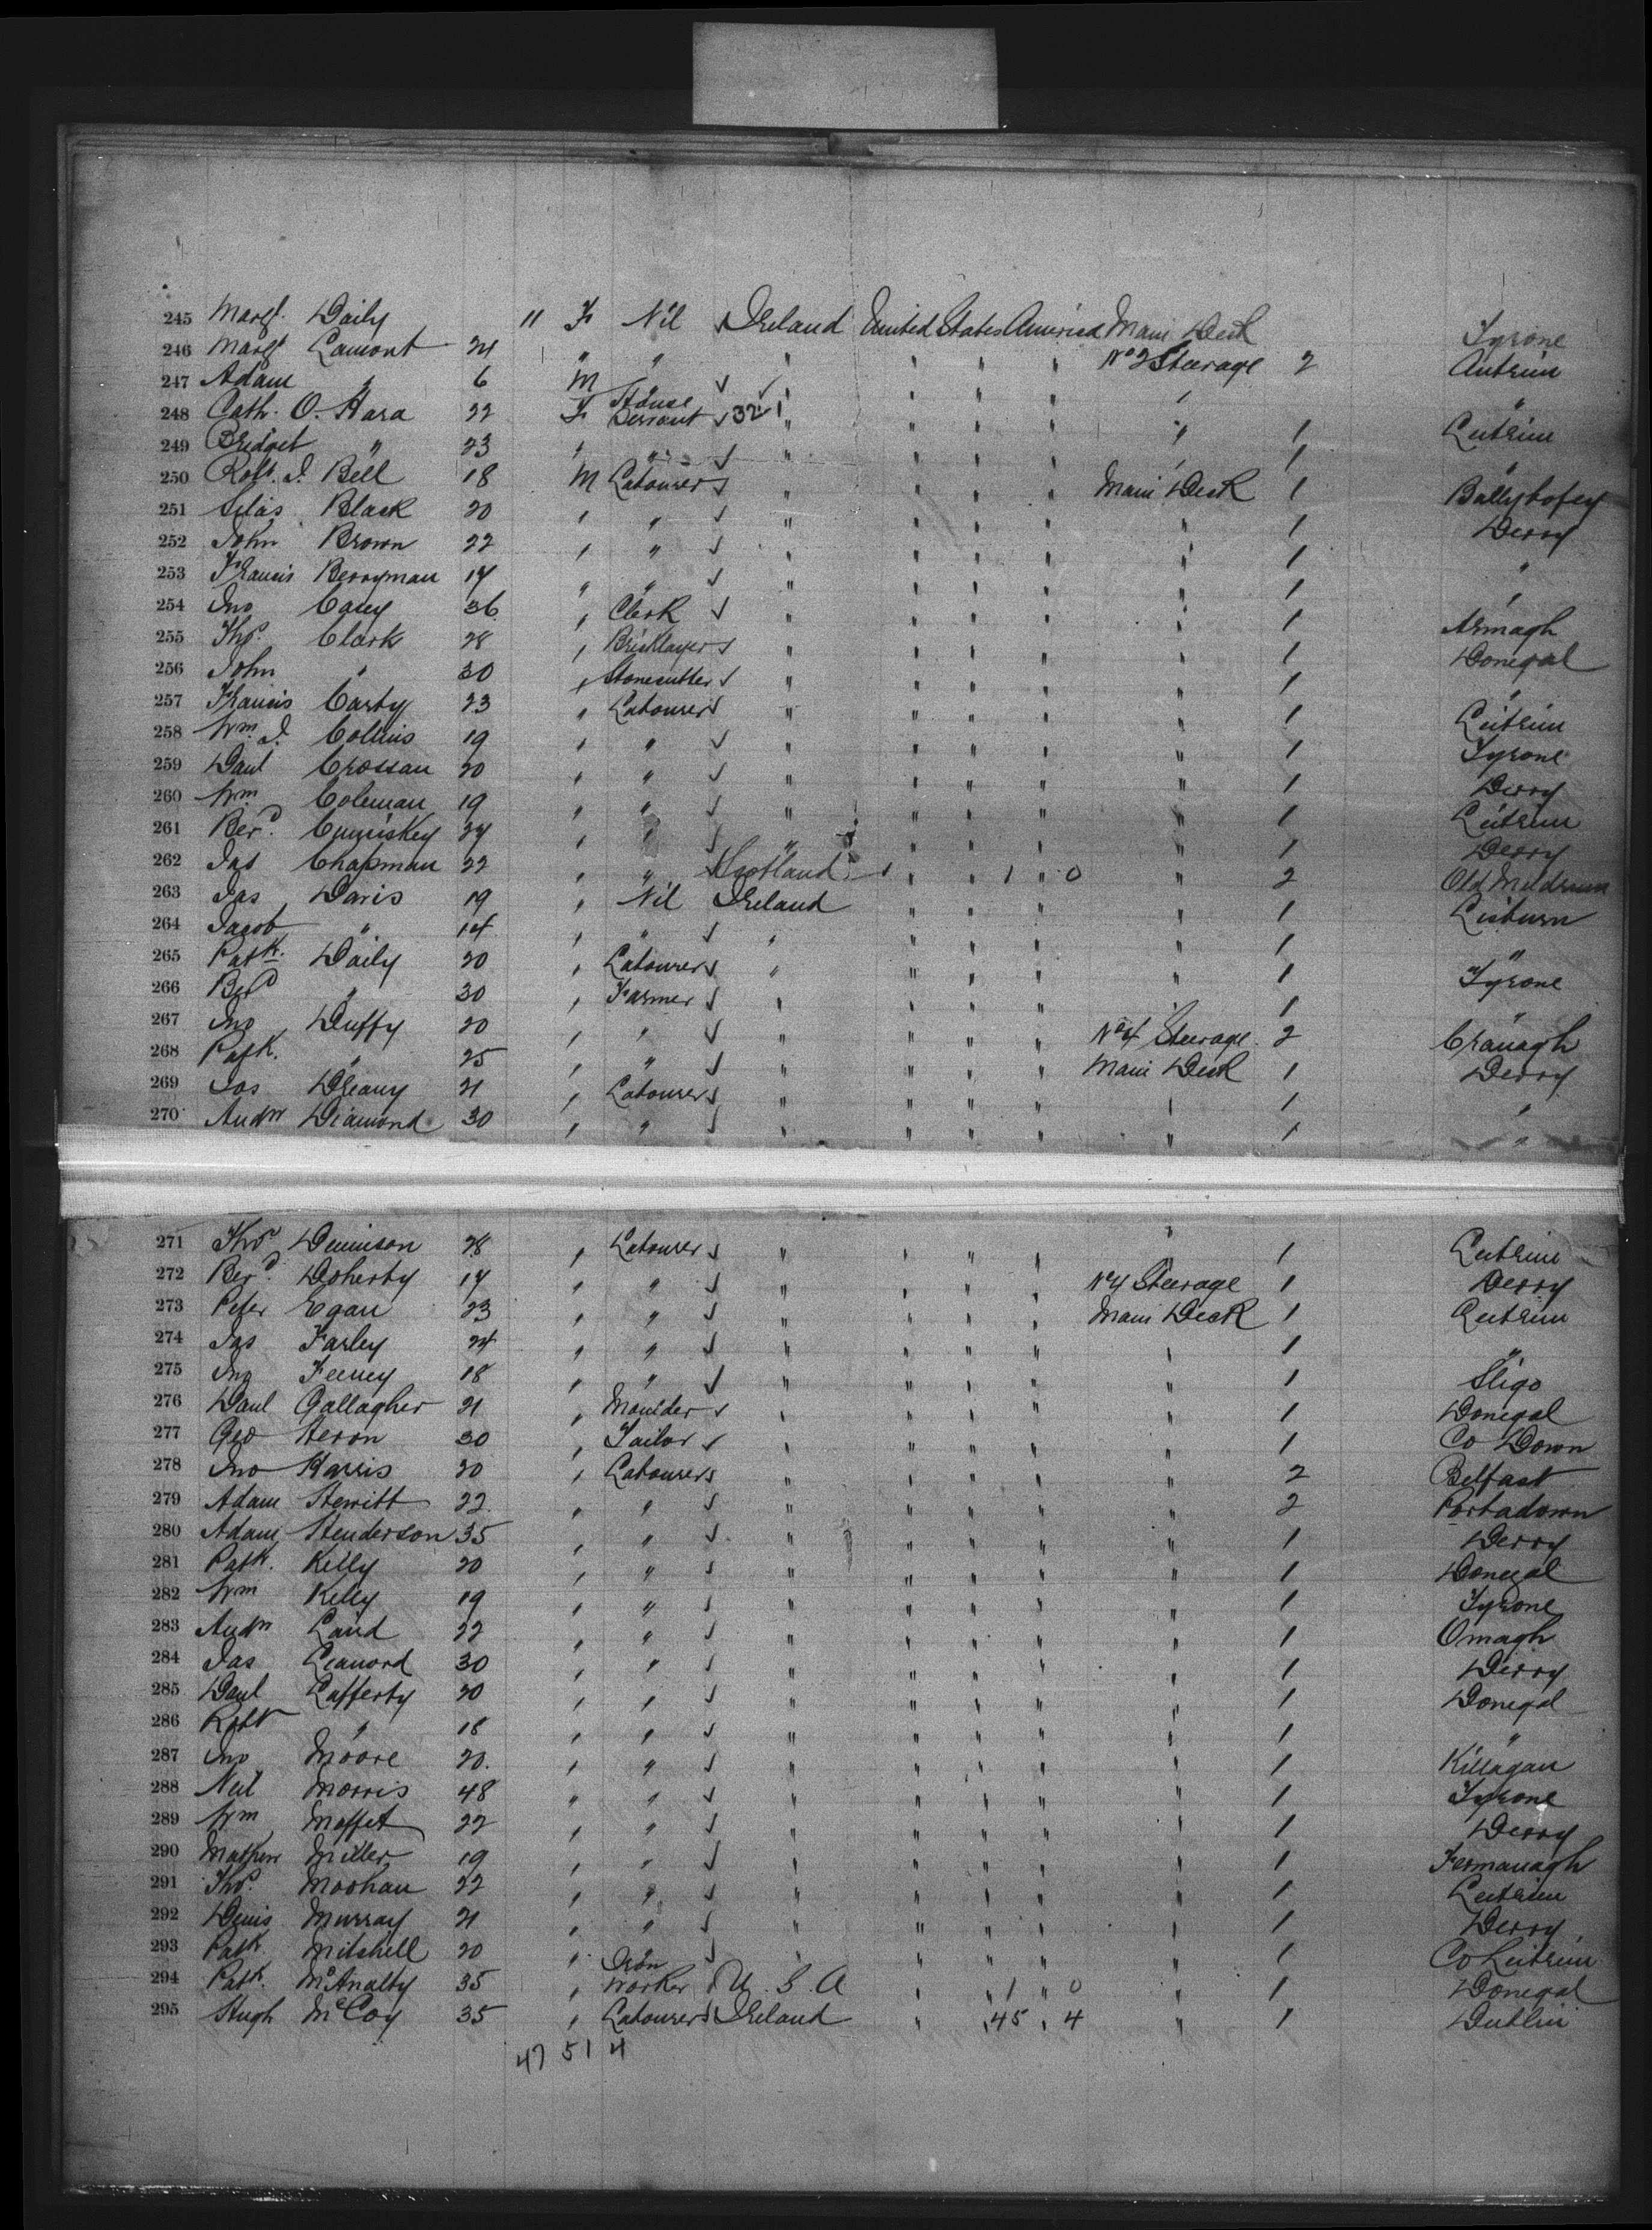 245 Margt. Daily 11 F Nil Ireland United States America Main Deck Tyrone
246 Margt Lamont 24 " " " " " " No 2 Steerage 2 Antrim
247 Adam " 6 M " " " " " "
248 Cath. O. Hara 22 F House Servant 32 1 " " " " " 1 Leitrim
249 Bridget " 23 " " " " " " " 1 "
250 Robt. J. Bell 18 M Labourer " " " " Main Deck 1 Ballybofey
251 Silas Black 20 " " " " " " " 1 Derry
252 John Brown 22 " " " " " " " 1 "
253 Francis Berryman 17 " " " " " " " 1 "
254 Jno Casey 36 " Clerk " " " " " 1 Armagh
255 Thos. Clark 28 " Bricklayer " " " " " 1 Donegal
256 John " 30 " Stonecutter " " " " " 1 "
257 Francis Carty 23 " Labourer " " " " " 1 Leitrim
258 Wm. J. Collins 19 " " " " " " " 1 Tyrone
259 Danl Crossan 20 " " " " " " " 1 Derry
260 Wm Coleman 19 " " " " " " " 1 Leitrim
261 Berd. Cumiskey 24 " " " " " " " 1 Derry
262 Jas Chapman 22 " " Scotland " " 1 " 0 " 2 Old Meldrum
263 Jas Davis 19 " Nil Ireland " " " " 1 Lisburn
264 Jacob " 14 " " " " " " " 1 "
265 Patk. Daily 20 " Labourer " " " " " 1 Tyrone
266 Berd " 30 " Farmer " " " " " 1 "
267 Jno Duffy 20 " " " " " " No 4 Steerage 2 Cranagh
268 Patk. " 25 " " " " " " Main Deck 1 Derry
269 Jas Dleany 21 " Labourer " " " " " 1 "
270 Andw Diamond 30 " " " " " " " 1 "
271 Thos Dennison 28 " Labourer " " " " " 1 Leitrim
272 Berd. Doherty 17 " " " " " " No 4 Steerage 1 Derry
273 Peter Egan 23 " " " " " " Main Deck 1 Leitrim
274 Jas Farley 24 " " " " " " " 1 "
275 Jno Feeney 18 " " " " " " " 1 Sligo
276 Danl Gallagher 21 " Moulder " " " " " 1 Donegal
277 Geo Heron 30 " Tailor " " " " " 1 Co Down
278 Jno Harris 20 " Labourer " " " " " 2 Belfast
279 Adam Hewitt 22 " " " " " " " 2 Portadown
280 Adam Henderson 35 " " " " " " " 1 Derry
281 Patk. Kelly 20 " " " " " " " 1 Donegal
282 Wm Kelly 19 " " " " " " " 1 Tyrone
283 Andw Laird 22 " " " " " " " 1 Omagh
284 Jas Leanord 30 " " " " " " " 1 Derry
285 Danl Lafferty 20 " " " " " " " 1 Donegal
286 Robt " 18 " " " " " " " 1 "
287 Jno Moore 20. " " " " " " " 1 Killagan
288 Neil Morris 48 " " " " " " " 1 Tyrone
289 Wm Moffet 22 " " " " " " " 1 Derry
290 Mathew Miller 19 " " " " " " " 1 Fermanagh
291 Thos. Moohan 22 " " " " " " " 1 Leitrim
292 Denis Murray 21 " " " " " " " 1 Derry
293 Patk. Mitchell 20 " " " " " " " 1 Co Leitrim
294 Patk. McAnalty 35 " Iron Worker U. S. A " " 1 " 0 " 1 Donegal
295 Hugh McCoy 35 " Labourer Ireland " " 45 " 4 " 1 Dublin
47 51 4